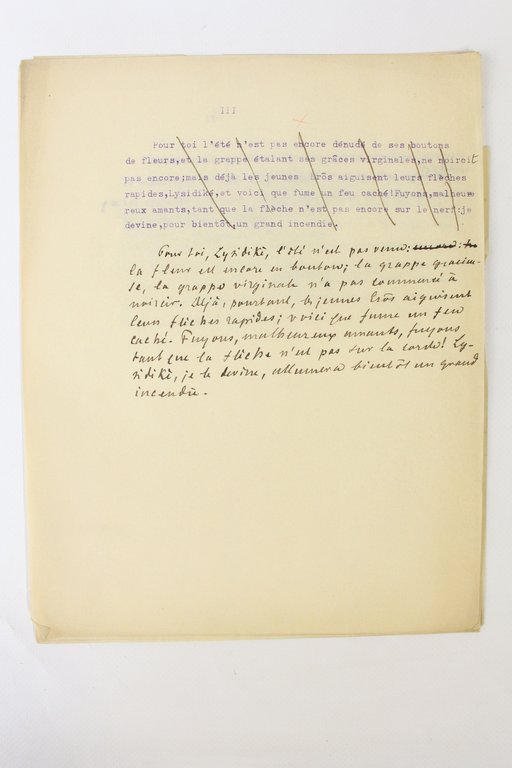 III
Pour toi l'été n'est pas encore dénudé de ses boutons
de fleurs,et la grappe étalant ses grâces virginales,ne noircit
pas encore;mais déjà les jeunes Erôs aiguisent leurs flèches
rapides,Lysidiké,et voici que fume un feu caché!Fuyons,malheu-
reux amants,tant que la flèche n'est pas encore sur le nerf:je
devine,pour bientôt,un grand incendie.
Pour toi, Lysidikè, l'été n'est pas venu:
la fleur est encore en bouton; la grappe gracieu-
se, la grappe virginale n'a pas commencé à
noircir. Déjà, pourtant, les jeunes Erôs aiguisent
leurs flèches rapides; voici que fume un feu
caché. Fuyons, malheureux amants, fuyons
tant que la flèche n'est pas sur la corde! Ly-
sidikè, je le devine, allumera bientôt un grand
incendie.